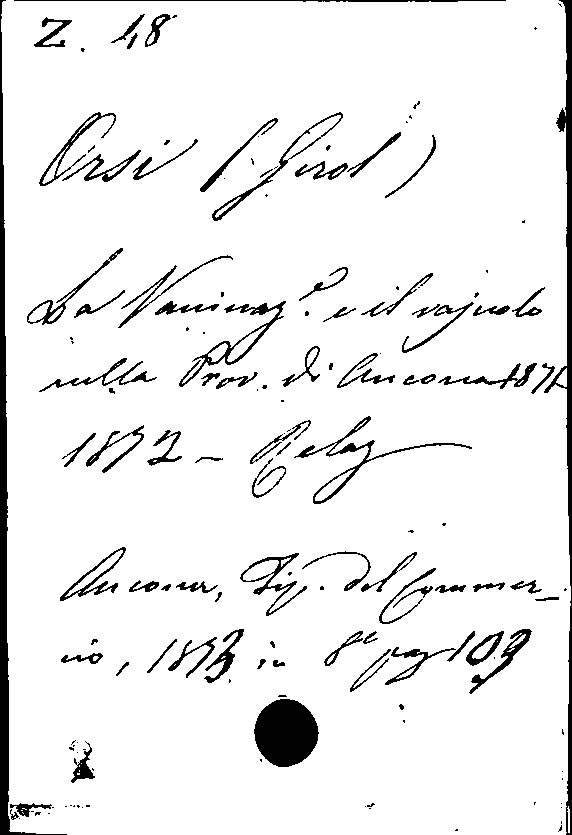 Z. 48
Orsi (Girol)
La Vaccinaz.e e il vajuolo
nella Prov. di Ancona 1871
1872 - Relaz
Ancona, Tip. del Commer-
cio, 1873 in 8° pag 103